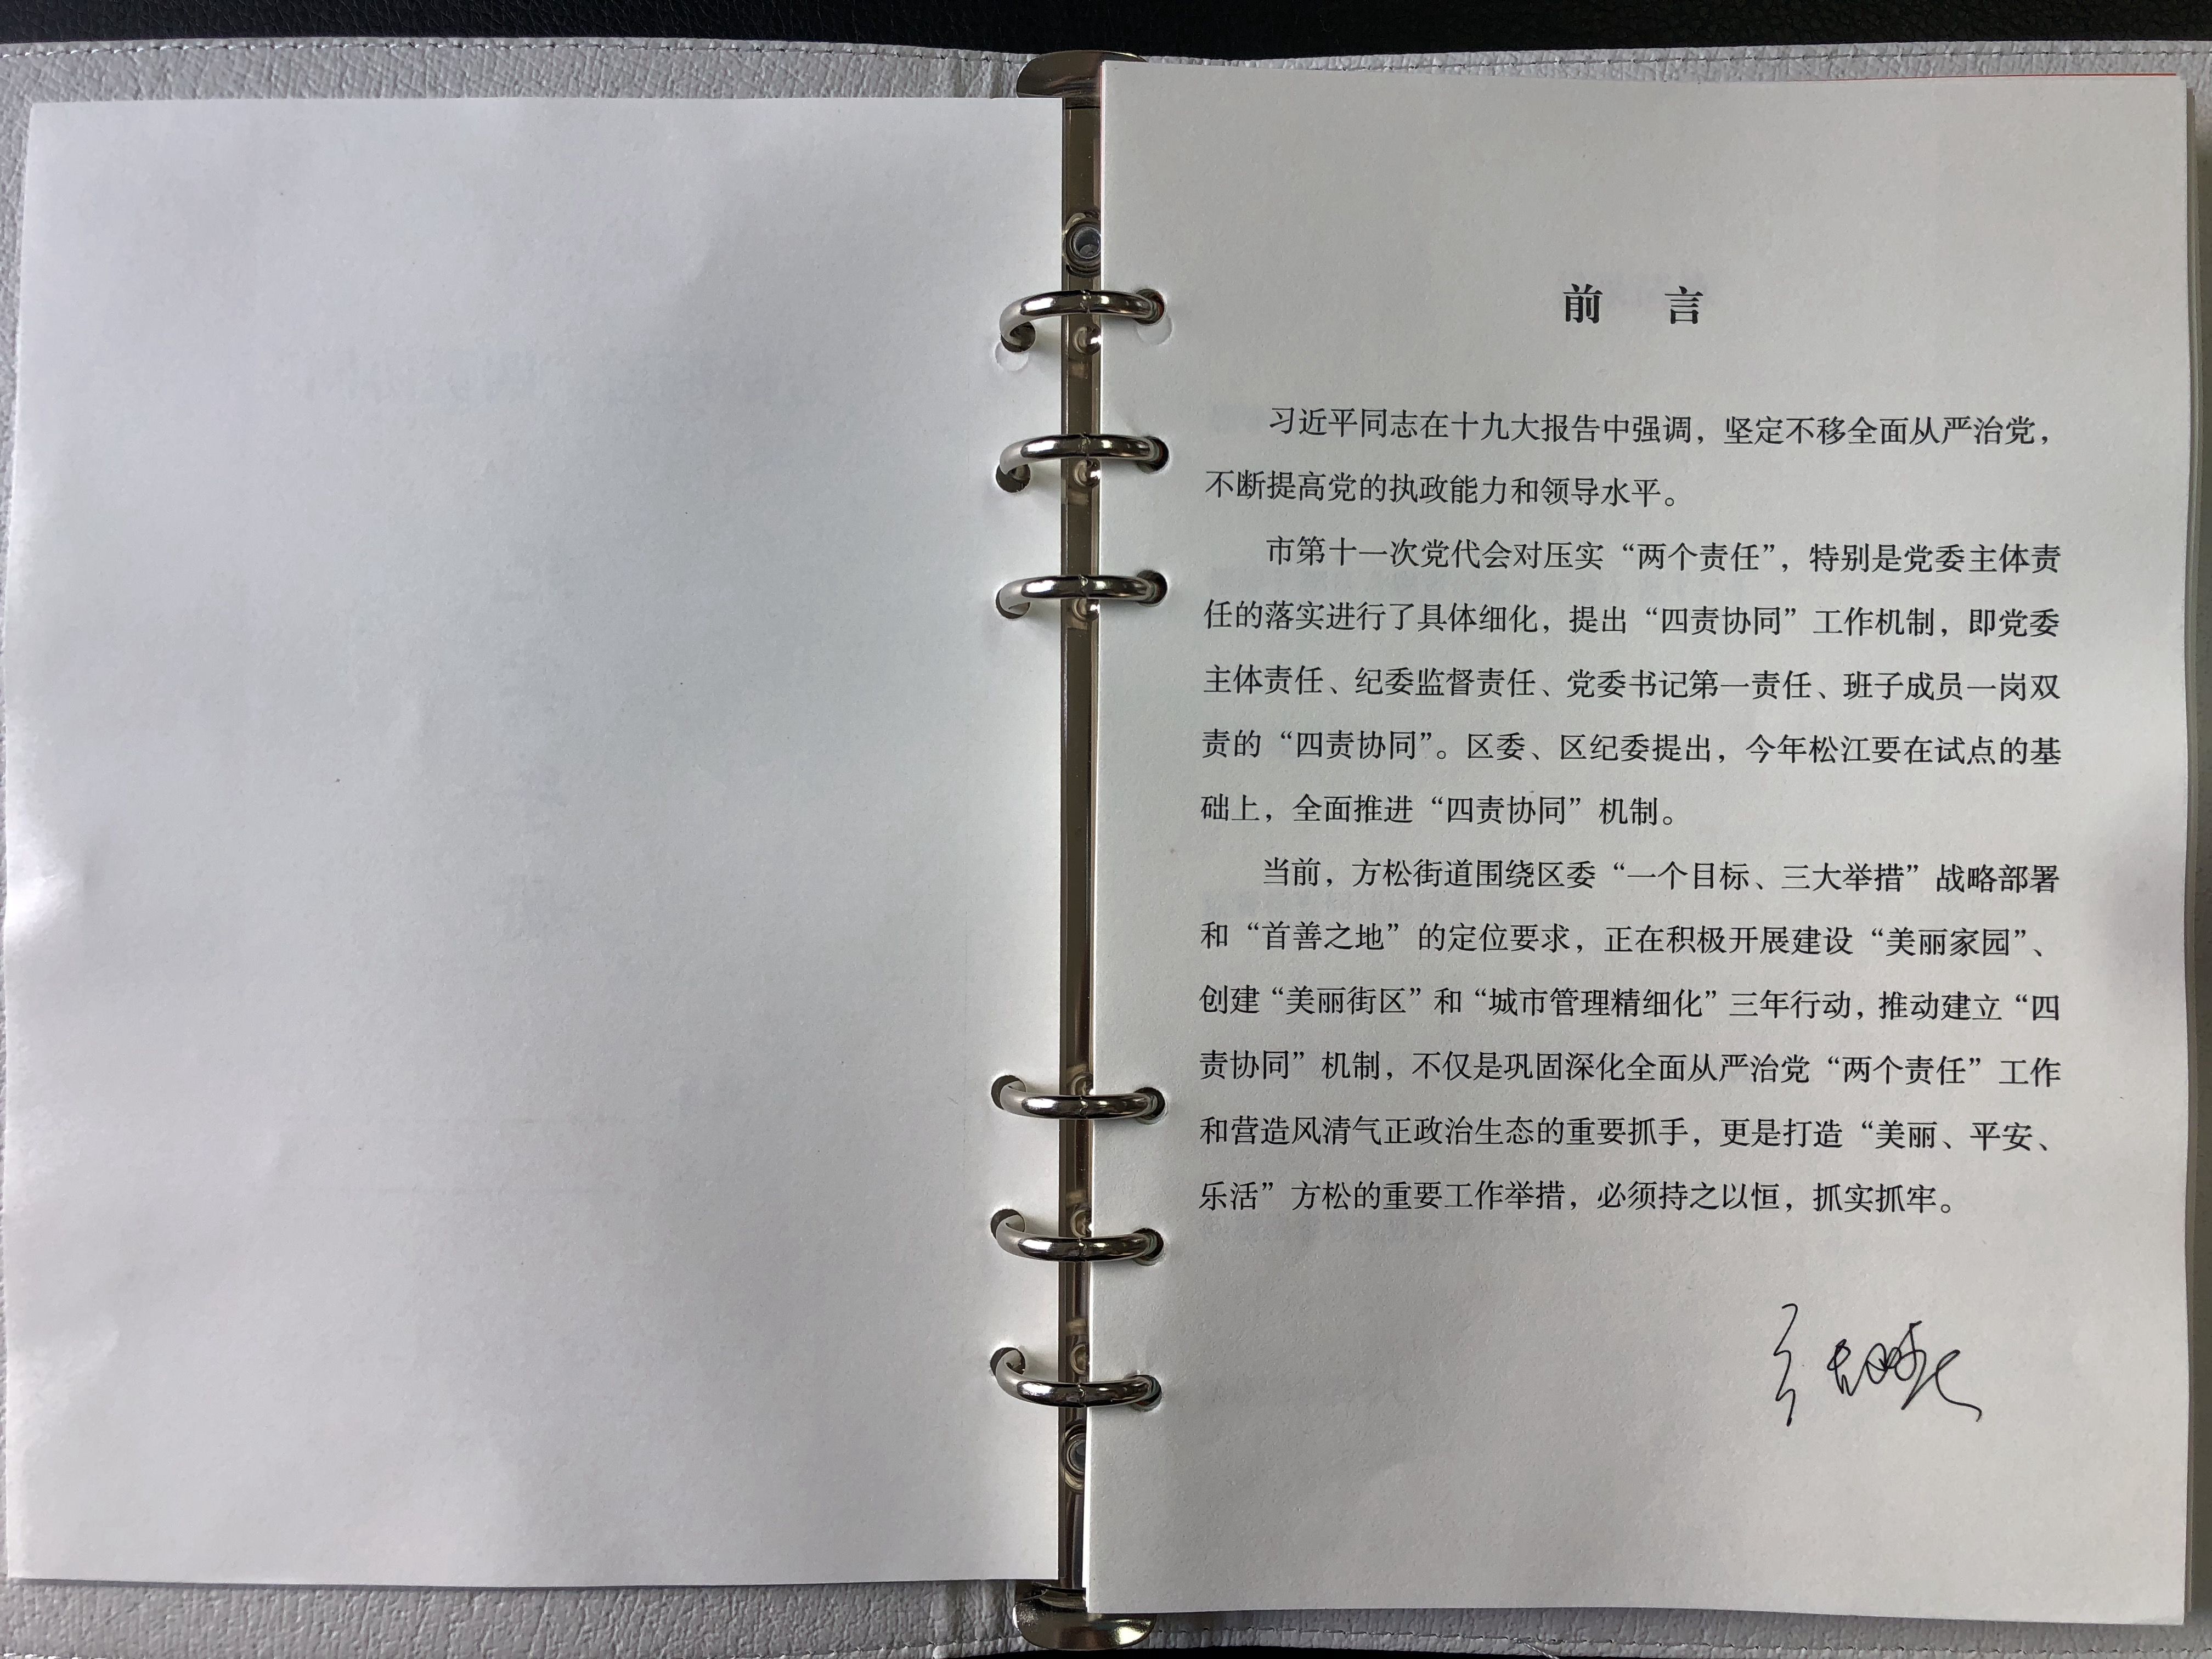 前 言
习近平同志在十九大报告中强调，坚定不移全面从严治党，
不断提高党的执政能力和领导水平。
市第十一次党代会对压实“两个责任”，特别是党委主体责
任的落实进行了具体细化，提出“四责协同”工作机制，即党委
主体责任、纪委监督责任、党委书记第一责任、班子成员一岗双
责的“四责协同”。区委、区纪委提出，今年松江要在试点的基
础上，全面推进“四责协同”机制。
当前，方松街道围绕区委“一个目标、三大举措”战略部署
和“首善之地”的定位要求，正在积极开展建设“美丽家园”、
创建“美丽街区”和“城市管理精细化”三年行动，推动建立“四
责协同”机制，不仅是巩固深化全面从严治党“两个责任”工作
和营造风清气正政治生态的重要抓手，更是打造“美丽、平安、
乐活”方松的重要工作举措，必须持之以恒，抓实抓牢。